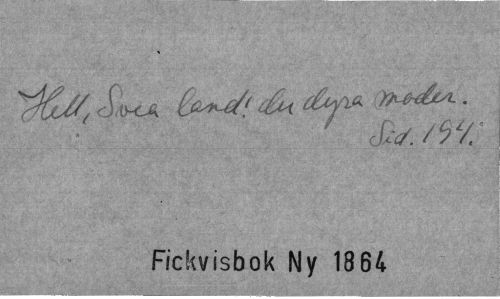 Hell, Svea land! du dyra moder.
Sid. 194.
Fickvisbok Ny 1864